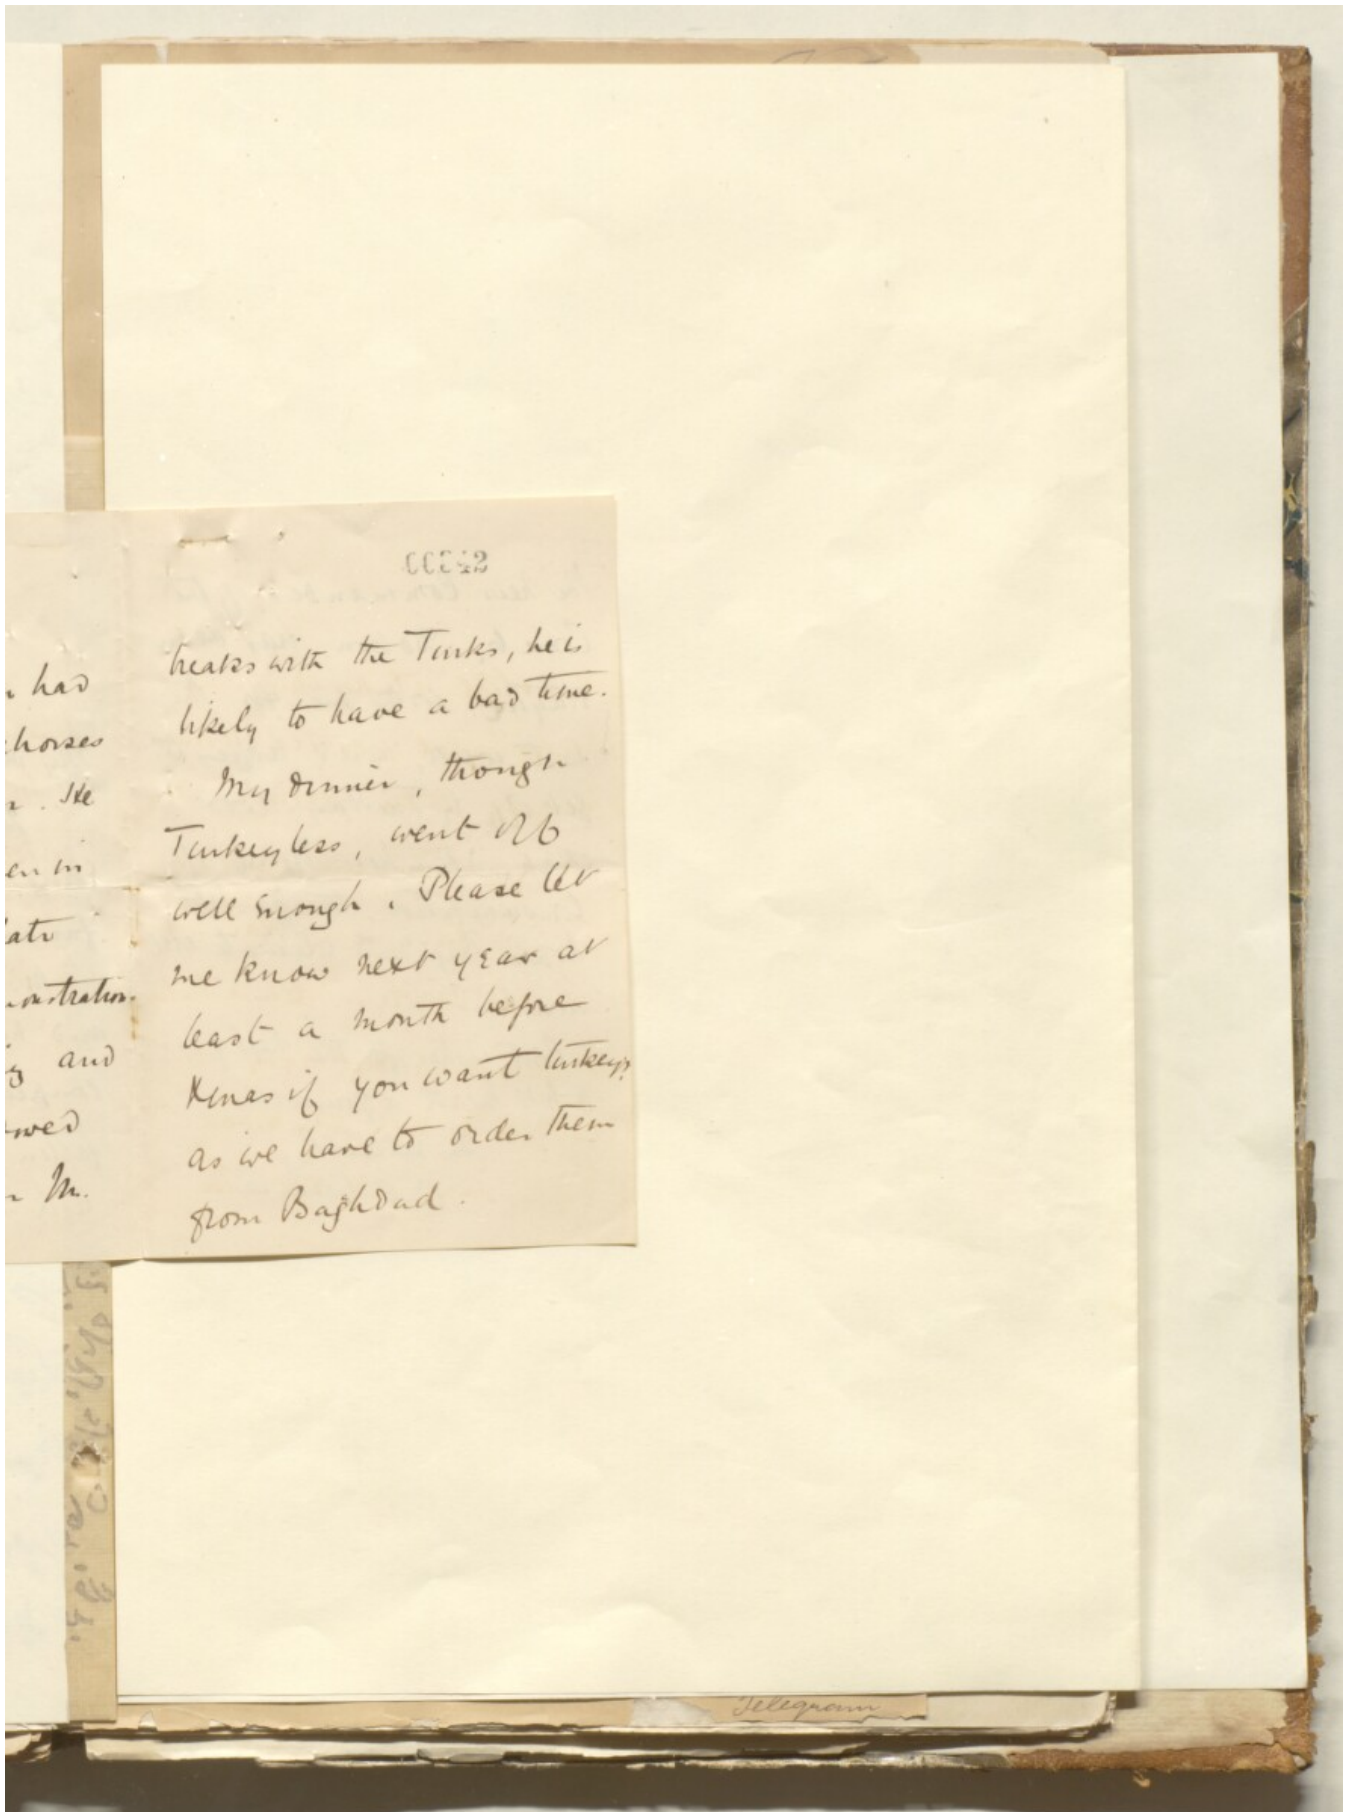 had
horses
. He
en in
ate
onstration.
and
wed
M.
00042
breaks with the Turks, he is
likely to have a bad time.
My dinner, though
Turkeyless, went off
well enough. Please let
me know next year at
least a month before
Xmas if you want turkeys
as we have to order them
from Baghdad.
Telegram